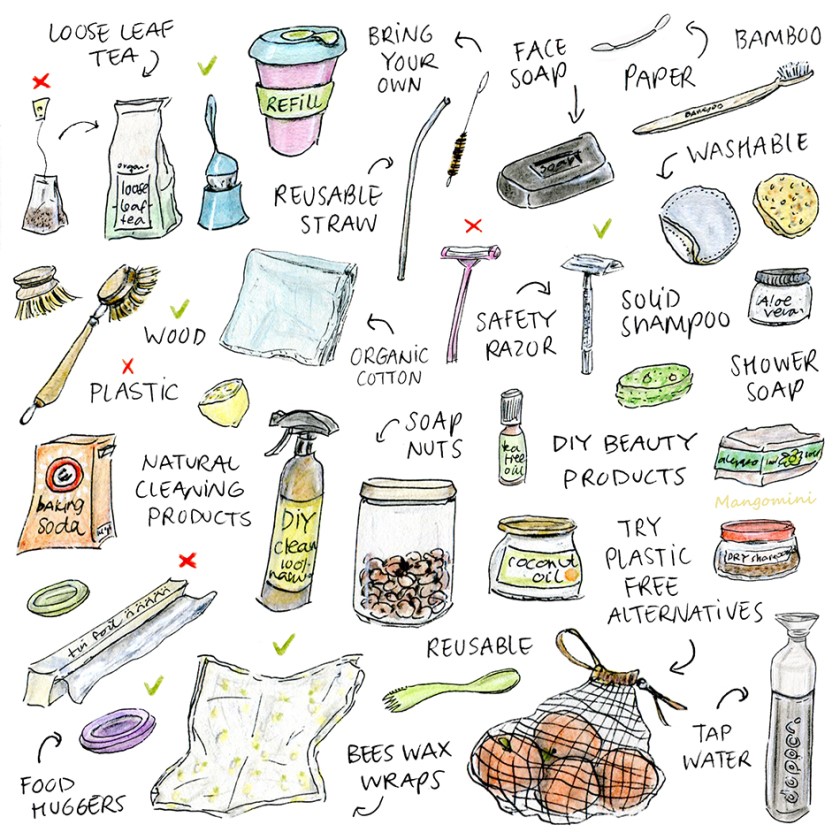 LOOSE LEAF
TEA
BRING
YOUR
OWN
FACE
SOAP
PAPER
BAMBOO
REFILL
BAMBOO
organic
loose
leaf
tea
REUSABLE
STRAW
SOAP
WASHABLE
WOOD
PLASTIC
ORGANIC
COTTON
SAFETY
RAZOR
SOLID
SHAMPOO
Aloe
vera
SHOWER
SOAP
baking
soda
NATURAL
CLEANING
PRODUCTS
DiY
clean
100%
SOAP
NUTS
tea
tree
oil
DIY BEAUTY
PRODUCTS
aleppo
Mangomini
coconut
oil
TRY
PLASTIC
FREE
ALTERNATIVES
DRY shampoo
tin foil
REUSABLE
FOOD
HUGGERS
BEES WAX
WRAPS
TAP
WATER
dopper